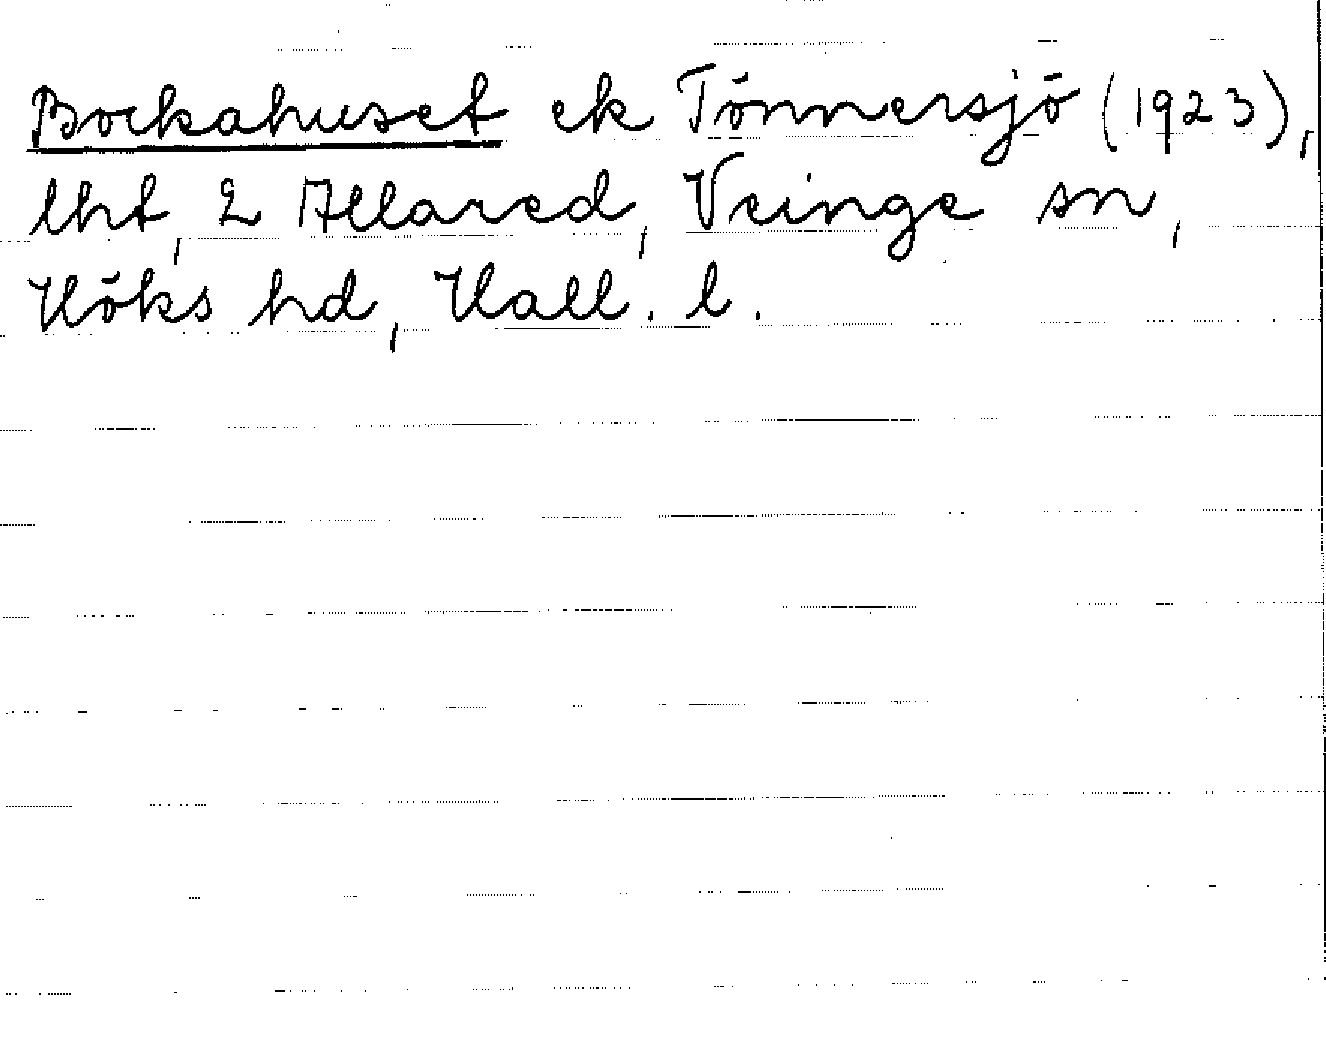 Bockahuset ek Tönnersjö (1923),
lht, 2 Allared, Veinge sn,
Höks hd, Hall. l.